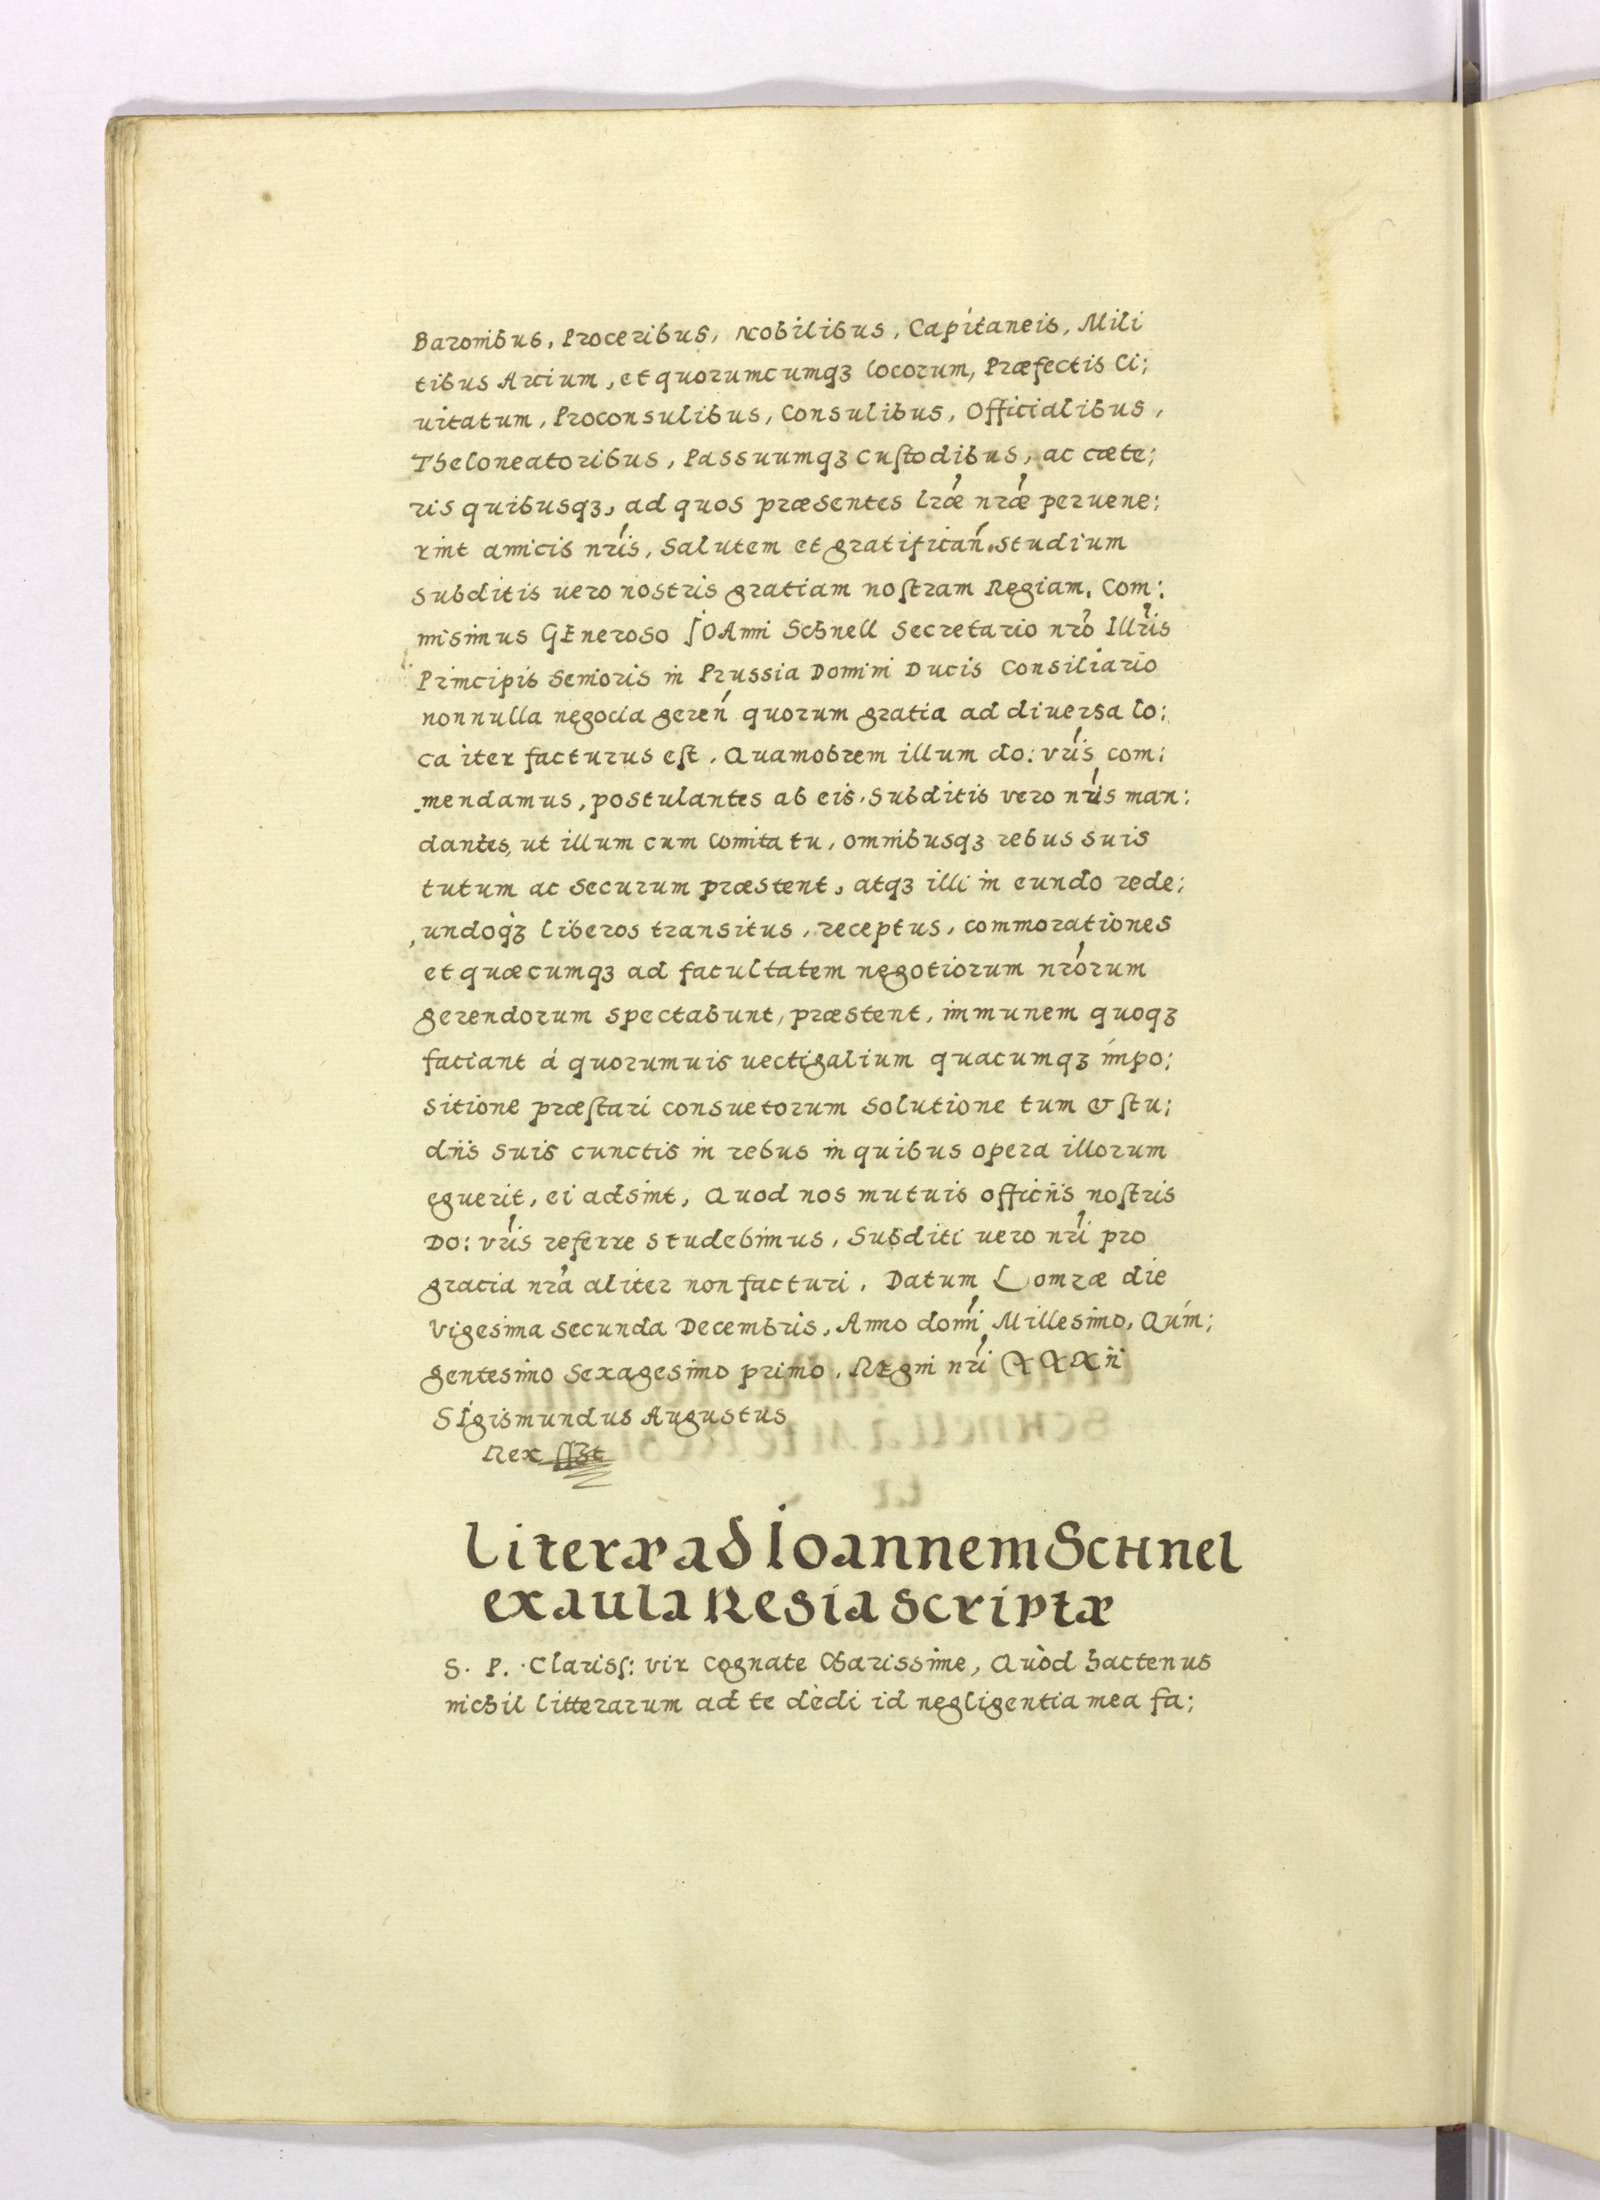 Baronibus, Proceribus, Nobilibus, Capitaneis, Mili
tibus Arcium, et quorumcumqꝫ locorum, Præfectis Ci:
uitatum, Proconsulibus, Consulibus, Officialibus,
Theloneatoribus, Passuumqꝫ Cuſtodibus, ac cæte:
ris quibusqꝫ, ad quos præsentes lræ nræ peruene:
rint amicis nris, Salutem et gratifican. Studium
Subditis uero nostris gratiam noſtram Regiam. Com:
misimus GEneroso JOAnni Schnell Secretario nro Illris
Principis Senioris in Prussia Domini Ducis Consiliario
nonnulla negocia geren quorum gratia ad diuersa lo:
ca iter facturus eſt. Quamobrem illum do: vris com:
mendamus, postulantes ab eis. Subditis vero nris man:
dantes, ut illum cum Comitatu, omnibusqꝫ rebus suis
tutum ac securum præstent, atqꝫ illi in eundo rede:
undoqꝫ liberos transitus, receptus, commorationes
et quæcumqꝫ ad facultatem negotiorum nrorum
gerendorum spectabunt, præstent, immunem quoqꝫ
faciant á quorumuis uectigalium quacumqꝫ impo:
sitione præſtari consuetorum solutione tum & ſtu:
diis suis cunctis in rebus in quibus opera illorum
eguerit, ei adsint, Quod nos mutuis officiis noſtris
Do: vris referre studebimus, Subditi uero nri pro
gracia nra aliter non facturi. Datum Lomzæ die
Vigesima secunda Decembris, Anno domi Millesimo, Quin:
gentesimo Sexagesimo primo. REgni nri XXXii
SIgismundus Augustus
Rex ſſꝫt
Literæ ad Ioannem Schnel
ex aula Regia scriptæ
S. P. Clariſſ: vir Cognate Charissime, Quòd hactenus
nichil litterarum ad te dèdi id negligentia mea fa: